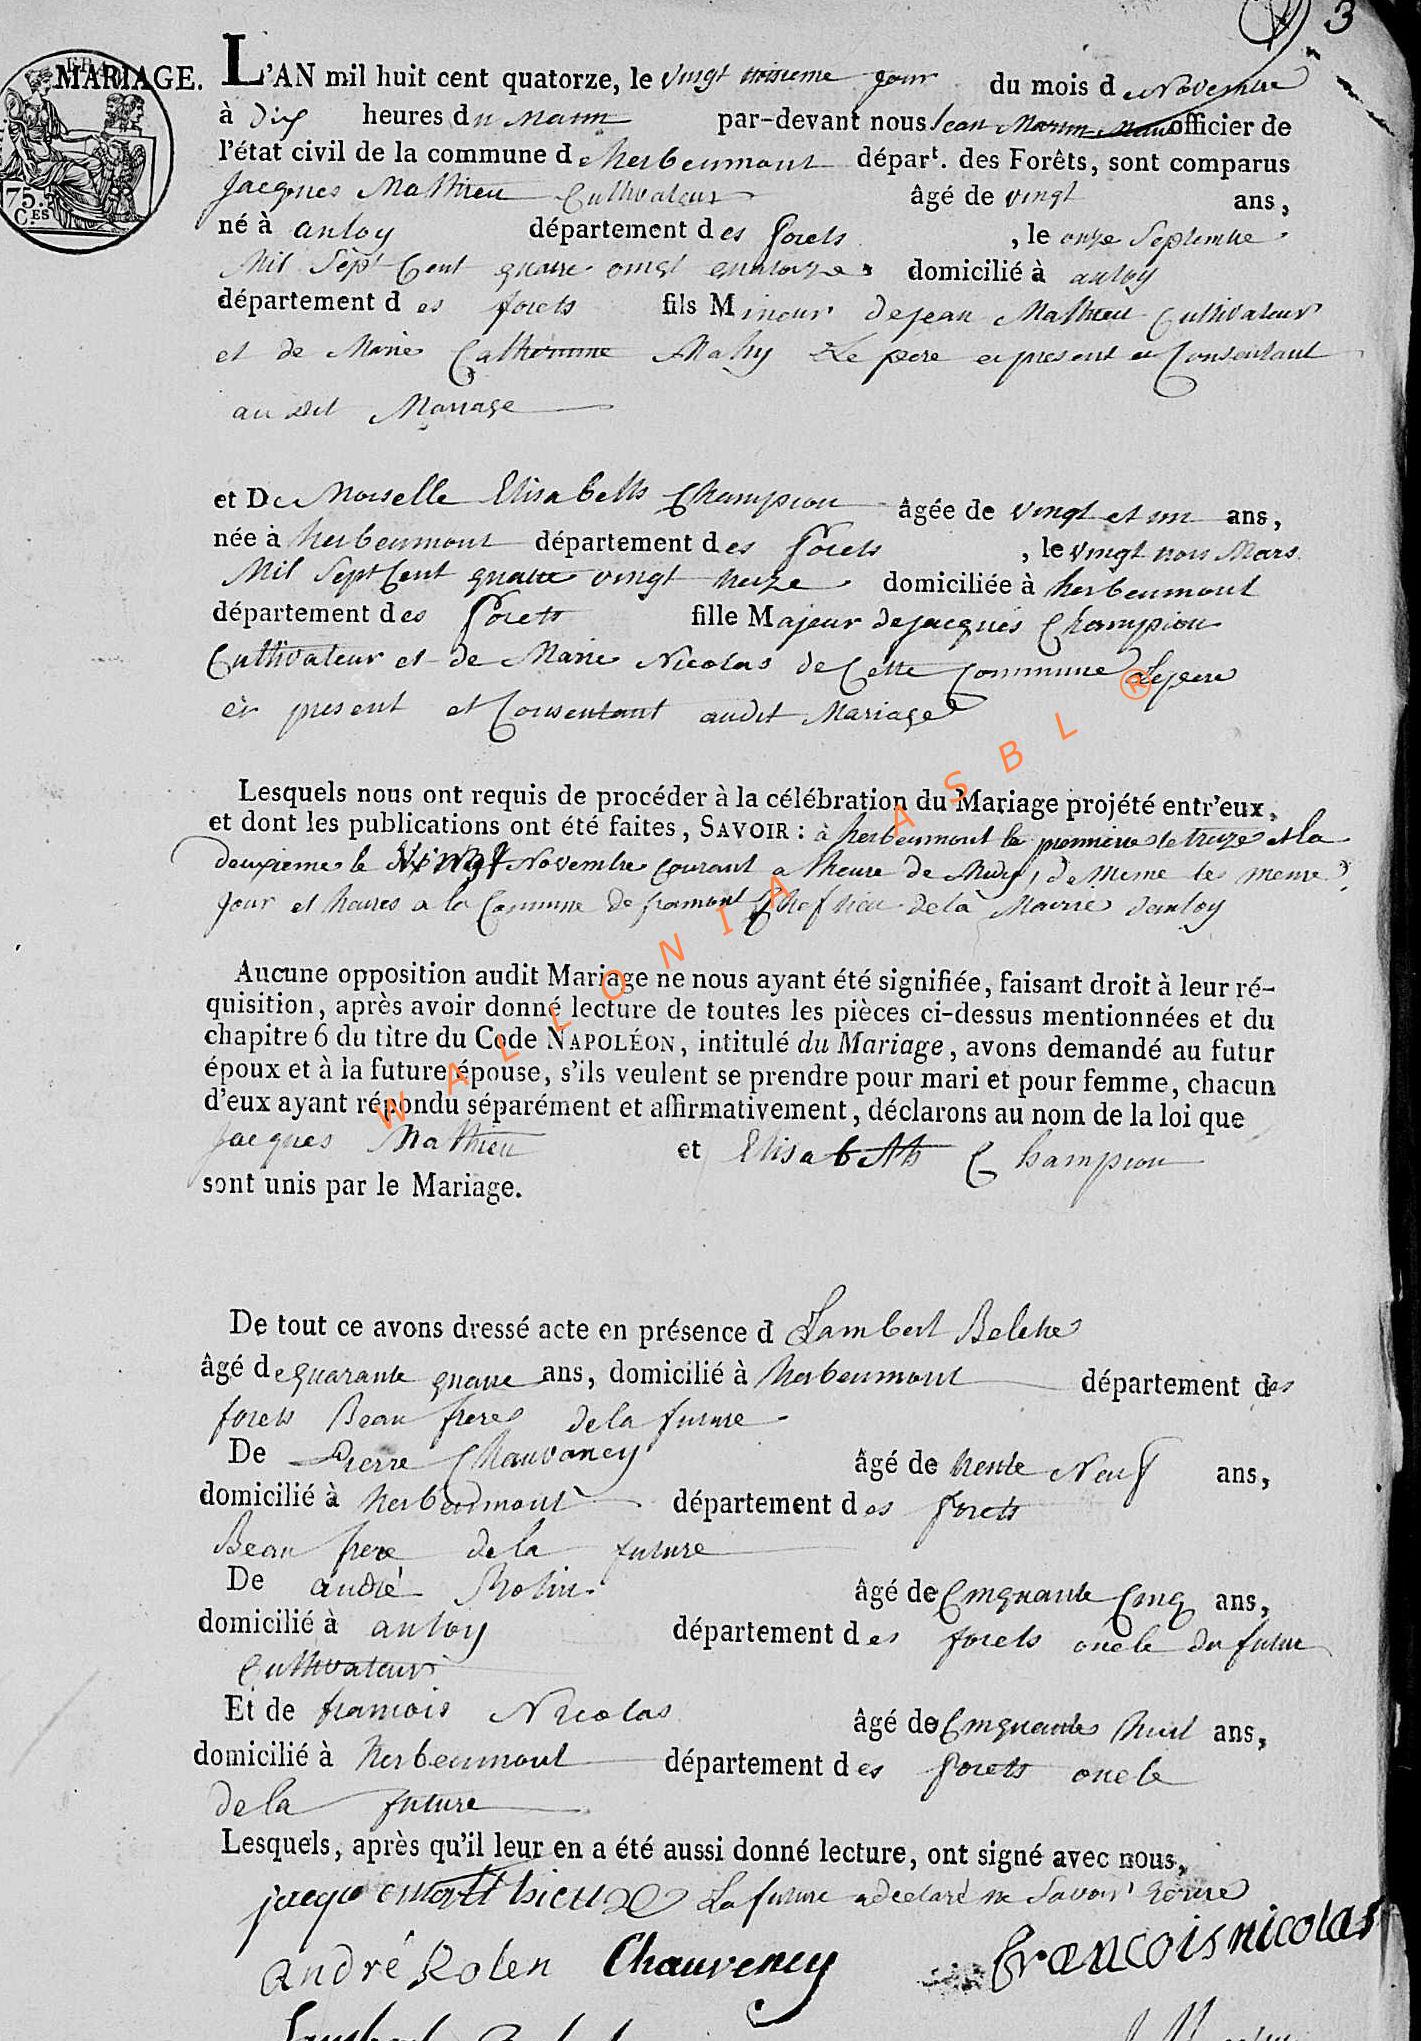 3
MARIAGE. L'AN mil huit cent quatorze, le vingt troisieme jour du mois de Novembre
à Dix heures du Matin par-devant nous Jean Martin officier de
l'état civil de la commune de herbeumont départ. des Forêts, sont comparus
Jacques Mathieu Cultivateur âgé de vingt ans,
né à anloy département des forets, le onze Septembre
Mil Sept Cent quatre vingt quatorze domicilié à anloy
département des forets fils Mineur de jean Mathieu Cultivateur
et de Marie Catherinne Mahy Le pere er present et Consentant
au dit Mariage
et De Moiselle Elisabeth Champion âgée de vingt et un ans,
née à herbeumont département des forets, le vingt trois Mars
Mil Sept Cent quatre vingt treize domiciliée à herbeumont
département des forets fille Majeur de jacques Champion
Cultivateur et de Marie Nicolas de Cette Commune Le pere
er present et Consentant audit Mariage
Lesquels nous ont requis de procéder à la célébration du Mariage projété entr'eux,
et dont les publications ont été faites, SAVOIR : à herbeumont la premiere le treize et la
deuxieme le vingt Novembre courant a lheure de Midy, de Meme les meme
jour et heures a la Commune de framont Chef lieu de la Mairie danloy
Aucune opposition audit Mariage ne nous ayant été signifiée, faisant droit à leur ré-
quisition, après avoir donné lecture de toutes les pièces ci-dessus mentionnées et du
chapitre 6 du titre du Code NAPOLÉON, intitulé du Mariage, avons demandé au futur
époux et à la future épouse, s'ils veulent se prendre pour mari et pour femme, chacun
d'eux ayant répondu séparément et affirmativement, déclarons au nom de la loi que
Jacques Mathieu et Elisabeth Champion
sont unis par le Mariage.
De tout ce avons dressé acte en présence d Lambert Belche
âgé de quarante quatre ans, domicilié à herbeumont département des
forets Beau frere de la future
De Pierre Chauvancy âgé de trente Neuf ans,
domicilié à herbeumont département des forets
Beau frere de la future
De andré Rolin âgé de Cinquante Cinq ans,
domicilié à anloy département des forets oncle du futur
Cultivateur
Et de francois Nicolas âgé de Cinquante huit ans,
domicilié à herbeumont département des forets oncle
de la future
Lesquels, après qu'il leur en a été aussi donné lecture, ont signé avec nous,
La future a déclaré ne Savoir Ecrire
andré Rolen Chauveney francois nicolas
Lambert
75. Ces
WALLONIA ASBL ®